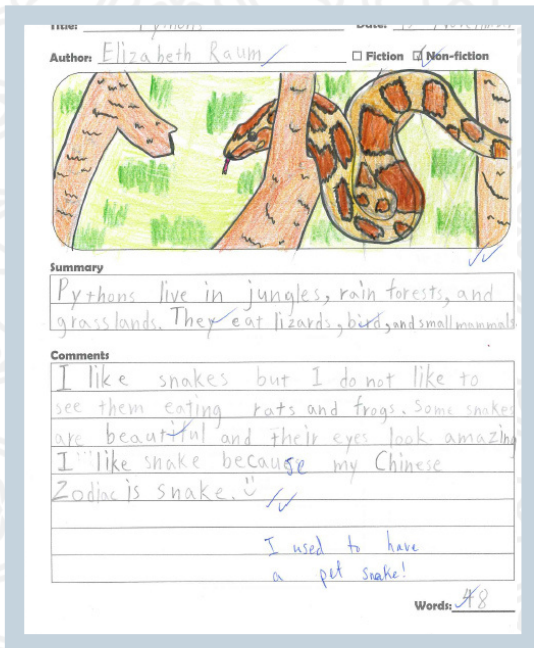 Title: Pythons Date: 15 November
Author: Elizabeth Raum
Fiction Non-fiction
Summary
Pythons live in jungles, rain forests, and
grasslands. They eat lizards, bird, and small mammals
Comments
I like snakes but I do not like to
see them eating rats and frogs. Some snakes
are beautiful and their eyes look amazing
I like snake because my Chinese
Zodiac is snake.
I used to have
a pet snake!
Words: 48